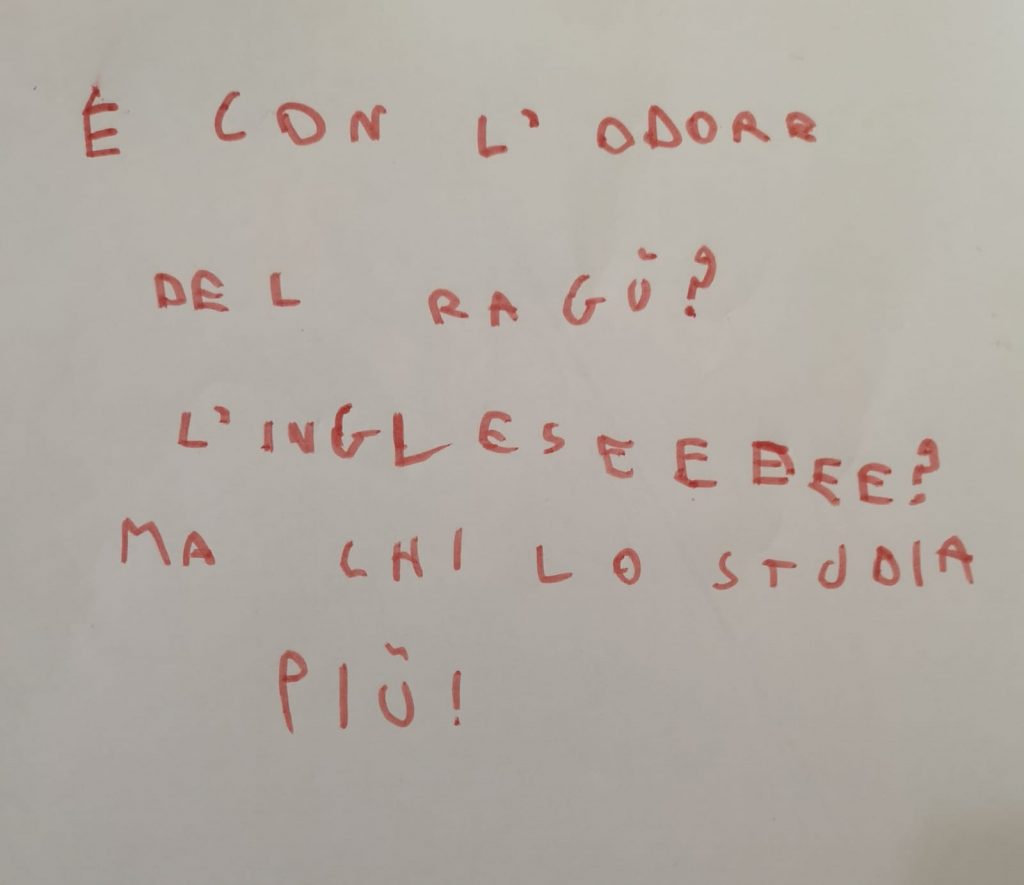 È CON L'ODORE
DEL RAGÙ?
L'INGLESEEEEEE?
MA CHI LO STUDIA
PIÙ!